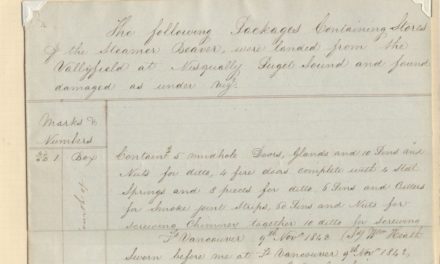 The following Packages Containing Stores
of the Steamer Beaver were landed from the
Vallyfield at Nisqually Puget Sound and found
damaged as under viz.
Marks &
Numbers
1 Box Containg 5 mudhole Doors, Glands and 10 Pins and
Nuts for ditto, 4 fire doors complete with 4 Steel
Springs and 8 pieces for ditto, 6 Pins and Cutters
for Smoke joint Straps, 60 Pins and Nuts for
screwing Chimney together 10 ditto for Screwing
Ft Vancouver 9th Novr 1843 Wm Heath
Sworn before me at Ft Vancouver 9th Novr 1843,